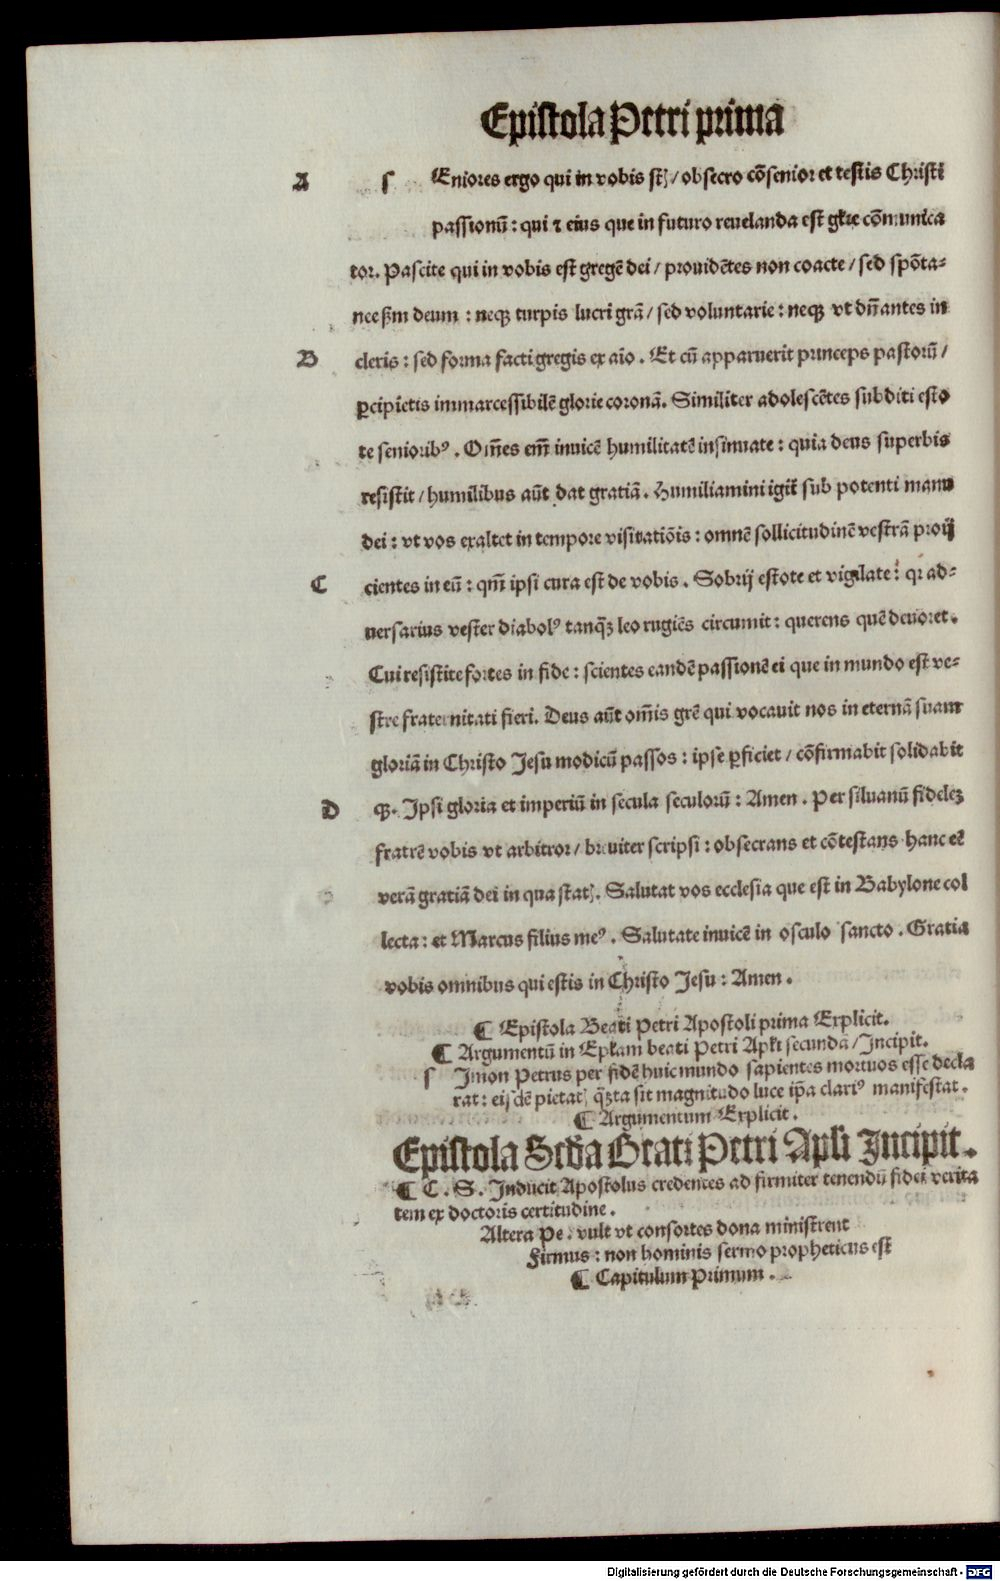 Epistola Petri prima
A s Eniores ergo qui in vobis st̄ / obsecro cōsenior et testis Christi
passionū : qui ⁊ eius que in futuro reuelanda est gl̄ie cōmunica
tor. Pascite qui in vobis est gregē dei / prouidētes non coacte / sed spōta-
nee ẜm deum : neqꝫ turpis lucri grā / sed voluntarie : neqꝫ vt dn̄antes in
B cleris : sed forma facti gregis ex aīo . Et cū apparuerit princeps pastorū /
ꝑcipietis immarcessibilē glorie coronā. Similiter adolescētes subditi esto
te senioribꝰ . Om̄es em̄ inuicē humilitatē insinuate : quia deus superbis
resistit / humilibus aūt dat gratiā . Humiliamini igit̄ sub potenti manu
dei : vt vos exaltet in tempore visitatiōis : omnē sollicitudinē vestrā proij
C cientes in eū : qm̄ ipsi cura est de vobis . Sobrij estote et vigilate : qꝛ ad-
uersarius vester diabolꝰ tanqꝫ leo rugiēs circumit : querens quē deuoret .
Cui resistite fortes in fide : scientes eandē passionē ei que in mundo est ve-
stre fraternitati fieri. Deus aūt om̄is grē qui vocauit nos in eternā suam
gloriā in Christo Jesu modicū passos : ipse ꝑficiet / cōfirmabit solidabit
D qꝫ. Ipsi gloria et imperiū in secula seculorū : Amen . Per siluanū fideleꝫ
fratrē vobis vt arbitror / breuiter scripsi : obsecrans et cōtestans hanc eē
verā gratiā dei in qua statꝭ. Salutat vos ecclesia que est in Babylone col
lecta : et Marcus filius meꝰ . Salutate inuicē in osculo sancto . Gratia
vobis omnibus qui estis in Christo Jesu : Amen .
¶ Epistola Beati Petri Apostoli prima Explicit.
¶ Argumentū in Epl̄am beati Petri Apl̄i secundā / Incipit.
s Imon Petrus per fidē huic mundo sapientes mortuos esse decla
rat : eijsdē pietatꝭ qꝫta sit magnitudo luce ip̄a clariꝰ manifestat .
¶ Argumentum Explicit .
Epistola Scd̄a Beati Petri Apl̄i Incipit.
¶ C . S . Inducit Apostolus credentes ad firmiter tenendū fidei verita
tem ex doctoris certitudine .
Altera Pe . vult vt consortes dona ministrent
Firmus : non hominis sermo propheticus est
¶ Capitulum Primum .
Digitalisierung gefördert durch die Deutsche Forschungsgemeinschaft - DFG